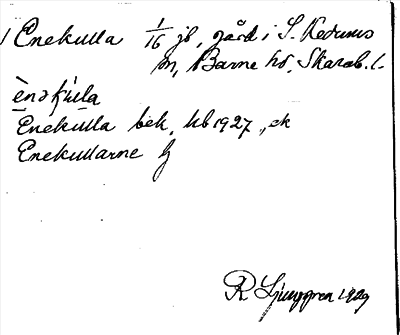 Enekulla 1/16 jb, gård i S. Kedums
sn, Barne hd, Skarab. l.
ènəkùla
Enekulla bek, kb 1927, ek
Enekullarne
R Ljunggren 1929